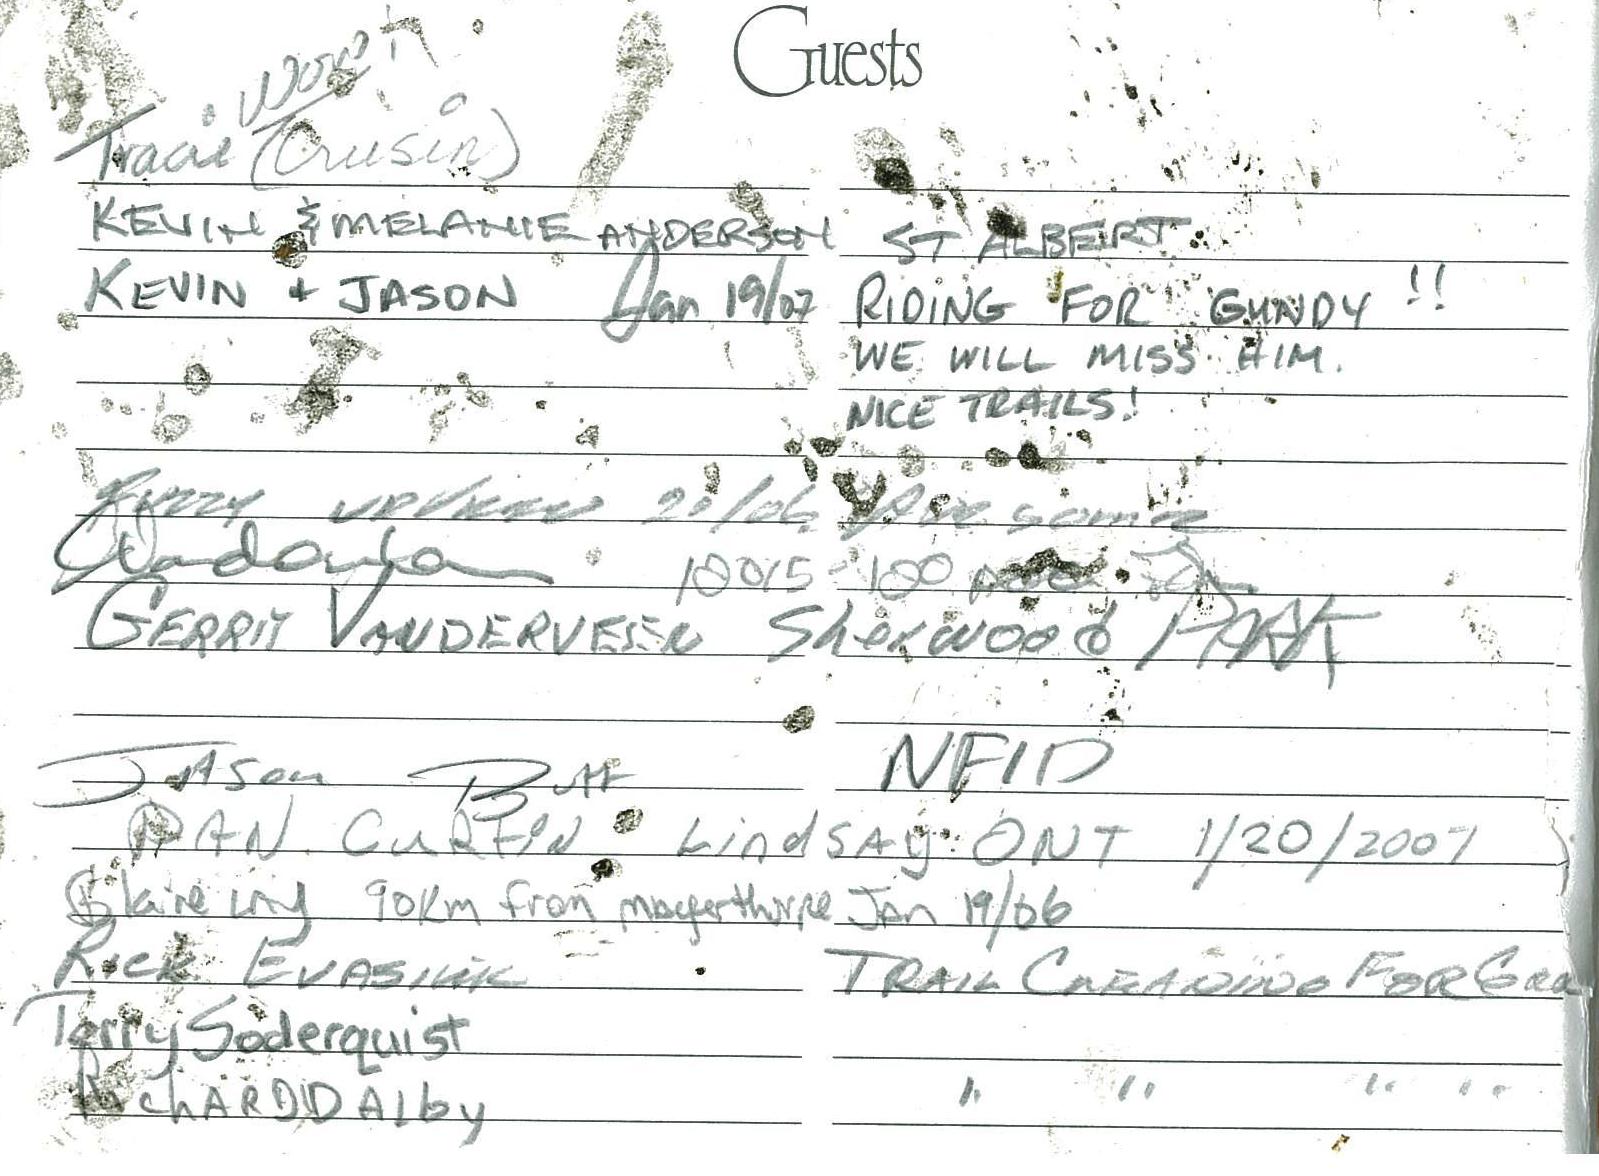 Guests
Wow!
Tracie (Crusin)
KEVIN & MELANIE ANDERSON ST ALBERT
KEVIN + JASON Jan 19/07 RIDING FOR GUNDY!!
WE WILL MISS HIM.
NICE TRAILS!
20/06 Awesome
10015-100
GERRIT VANDERVEEN Sherwood PARK
JASon Butt NFlD
DAN CURTIN LindSAy ONT 1/20/2007
Blaire 90Km from mayerthorpe Jan 19/06
RICK TRAIL FOR
Terry Soderquist
RichARD DAlby " " " "